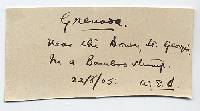 Grenada.
Near the Town, St. Georges.
In a Bamboo stump.
22/8/05. W.E.B.